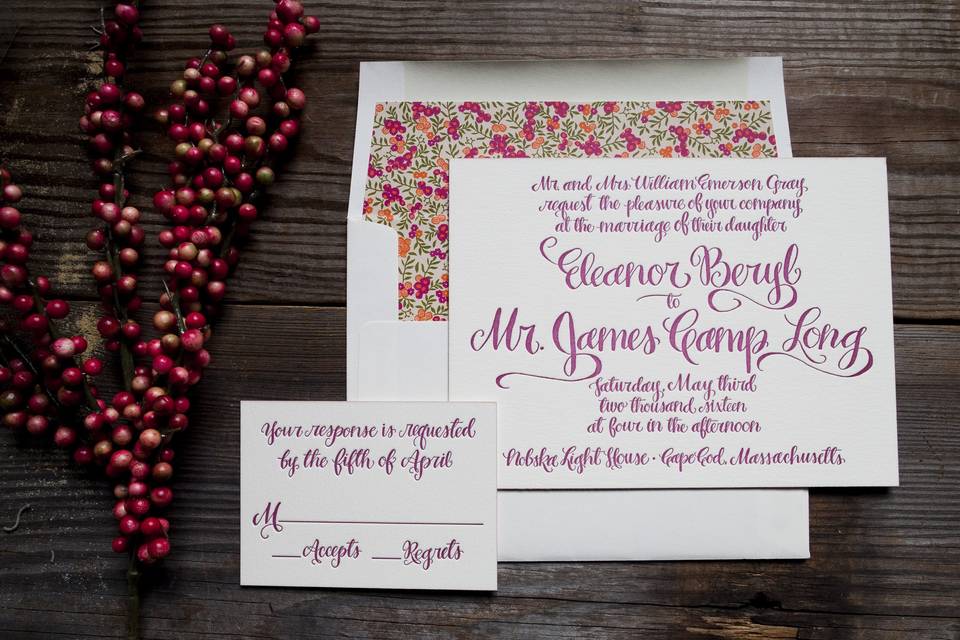 Mr. and Mrs. William Emerson Gray
request the pleasure of your company
at the marriage of their daughter
Eleanor Beryl
to
Mr. James Camp Long
Saturday, May third
two thousand sixteen
at four in the afternoon
Nobska Light House · Cape Cod, Massachusetts
Your response is requested
by the fifth of April
M
Accepts Regrets